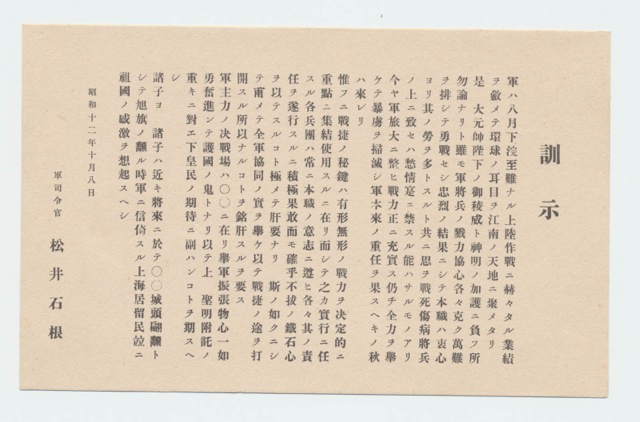 訓示
軍ハ八月下浣至難ナル上陸作戰ニ赫々タル業績
ヲ斂メテ環球ノ耳目ヲ江南ノ天地ニ聚メタリ
是 大元帥陛下ノ御稜威ト神明ノ加護ニ負フ所
勿論ナリト雖モ軍將兵ノ戮力協心各々克ク萬難
ヲ排シテ勇戰セシ忠烈ノ結果ニシテ本職ハ衷心
ヨリ其ノ勞ヲ多トスルト共ニ思ヲ戰死傷病將兵
ノ上ニ致セハ愁情寔ニ禁スル能ハサルモノアリ
今ヤ軍旅大ニ整ヒ戰力正ニ充實ス仍チ全力ヲ擧
ケテ暴虜ヲ掃滅シ軍本來ノ重任ヲ果スヘキノ秋
ハ來レリ
惟フニ戰捷ノ秘鍵ハ有形無形ノ戰力ヲ決定的ニ
重點ニ集結使用スルニ在リ而シテ之カ實行ニ任
スル各兵團ハ常ニ本職ノ意志ニ遵ヒ各々其ノ責
任ヲ遂行スルニ積極果敢而モ確乎不拔ノ鐵石心
ヲ以テスルコト極メテ肝要ナリ 斯ノ如クニシ
テ甫メテ全軍協同ノ實ヲ擧ケ以テ戰捷ノ途ヲ打
開スル所以ナルコトヲ銘肝スルヲ要ス
軍主力ノ決戰場ハ〇〇ニ在リ擧軍振張物心一如
勇奮進ンテ護國ノ鬼トナリ以テ上 聖明附託ノ
重キニ對エ下皇民ノ期待ニ副ハンコトヲ期スヘ
シ
諸子ヨ 諸子ハ近キ將來ニ於テ〇〇城頭翩翻ト
シテ旭旗ノ飜ル時軍ニ信倚スル上海居留民竝ニ
祖國ノ感激ヲ想起スヘシ
昭和十二年十月八日
軍司令官 松井石根